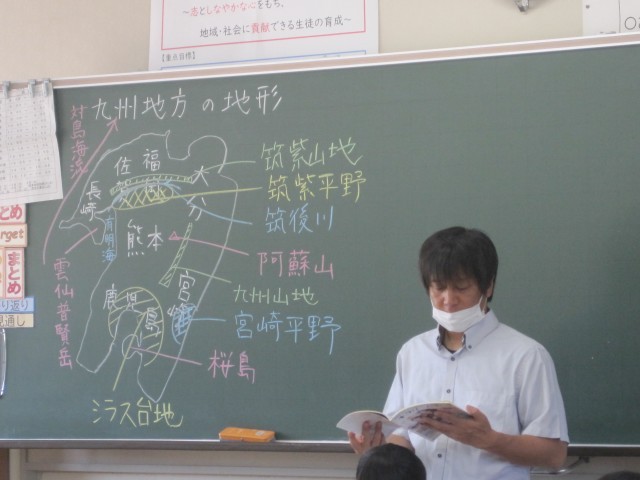 ~志としなやかな心をもち、
地域・社会に貢献できる生徒の育成~
【重点目標】
九州地方の地形
対馬海流
佐賀
福岡
大分
長崎
有明海
熊本
宮崎
鹿児島
筑紫山地
筑紫平野
筑後川
阿蘇山
九州山地
宮崎平野
桜島
シラス台地
雲仙普賢岳
まとめ